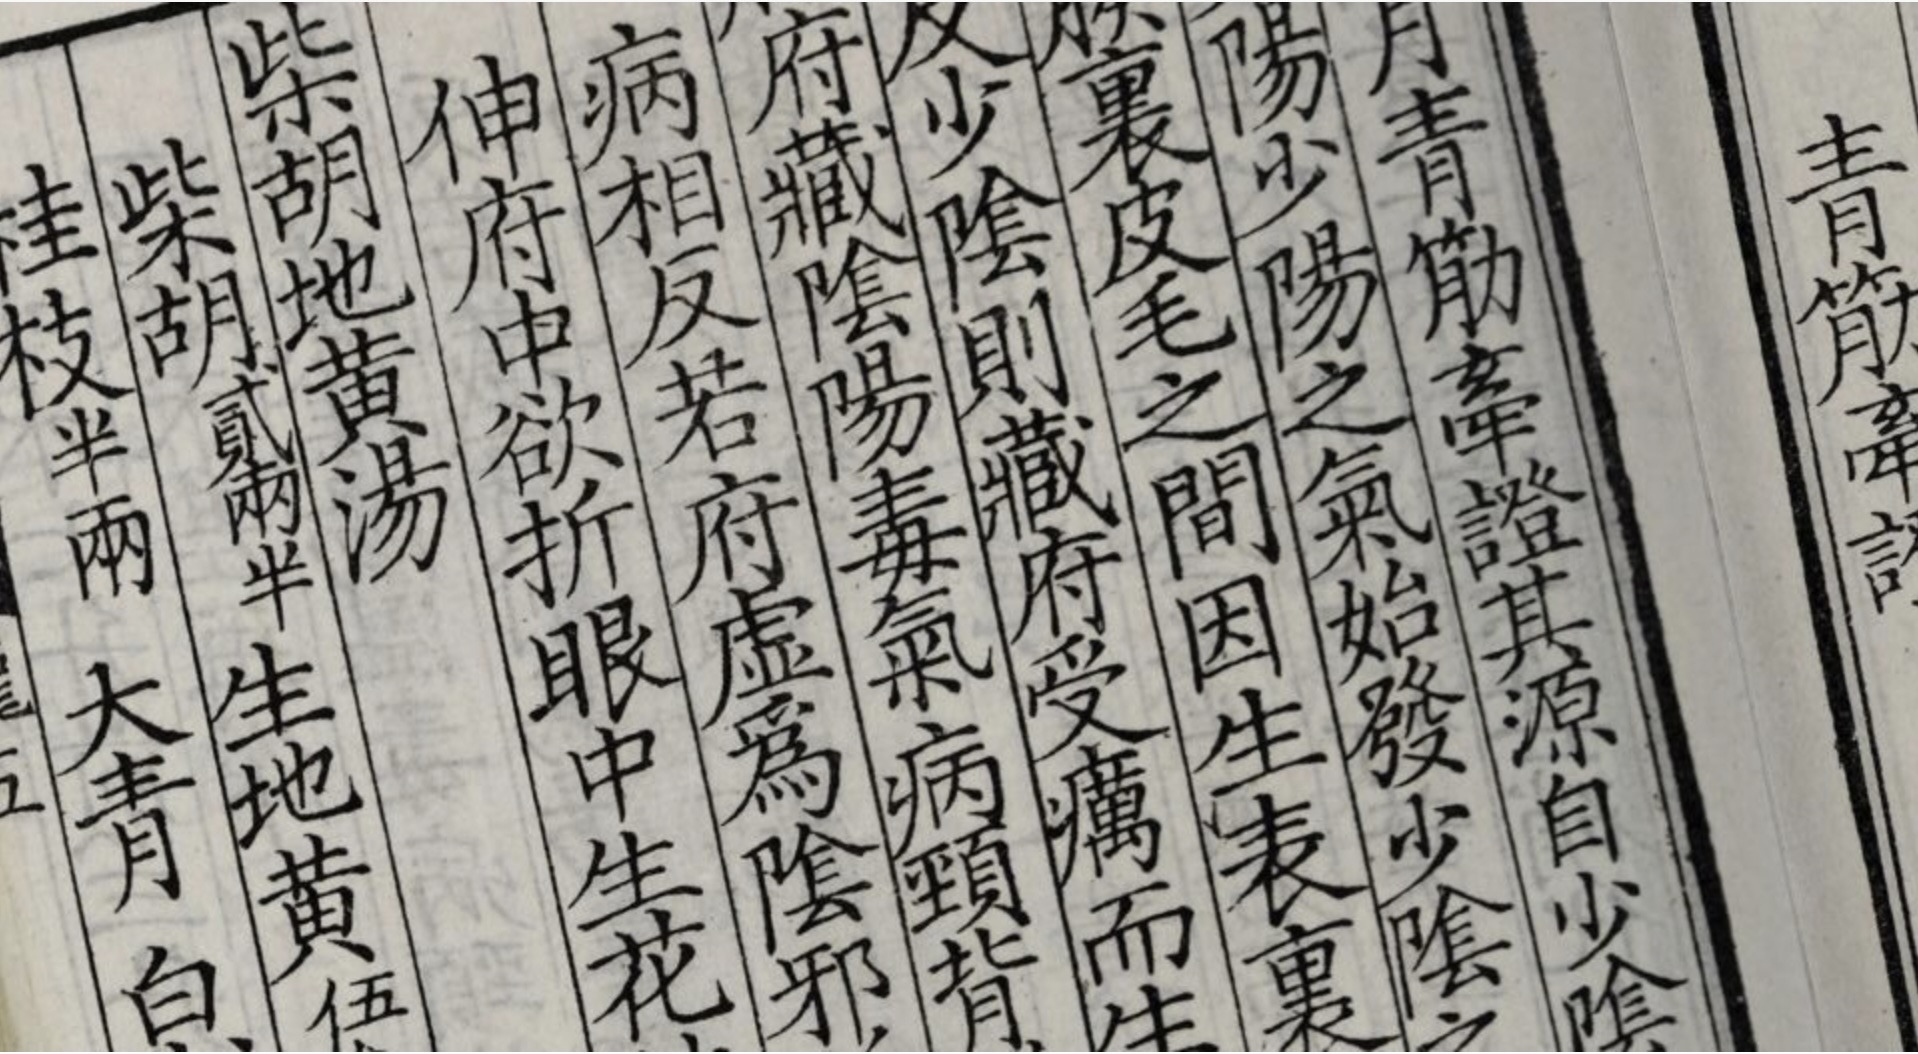 青筋牽證
月青筋牽證其源自少陰
陽少陽之氣始發少陰之
裏皮毛之間因生表裏
反少陰則藏府受癘而生
府藏陰陽毒氣病頸背
病相反若府虛為陰邪
伸府中欲折眼中生花
柴胡地黃湯
柴胡貳兩半 生地黃伍
桂枝半兩 大青 白
五